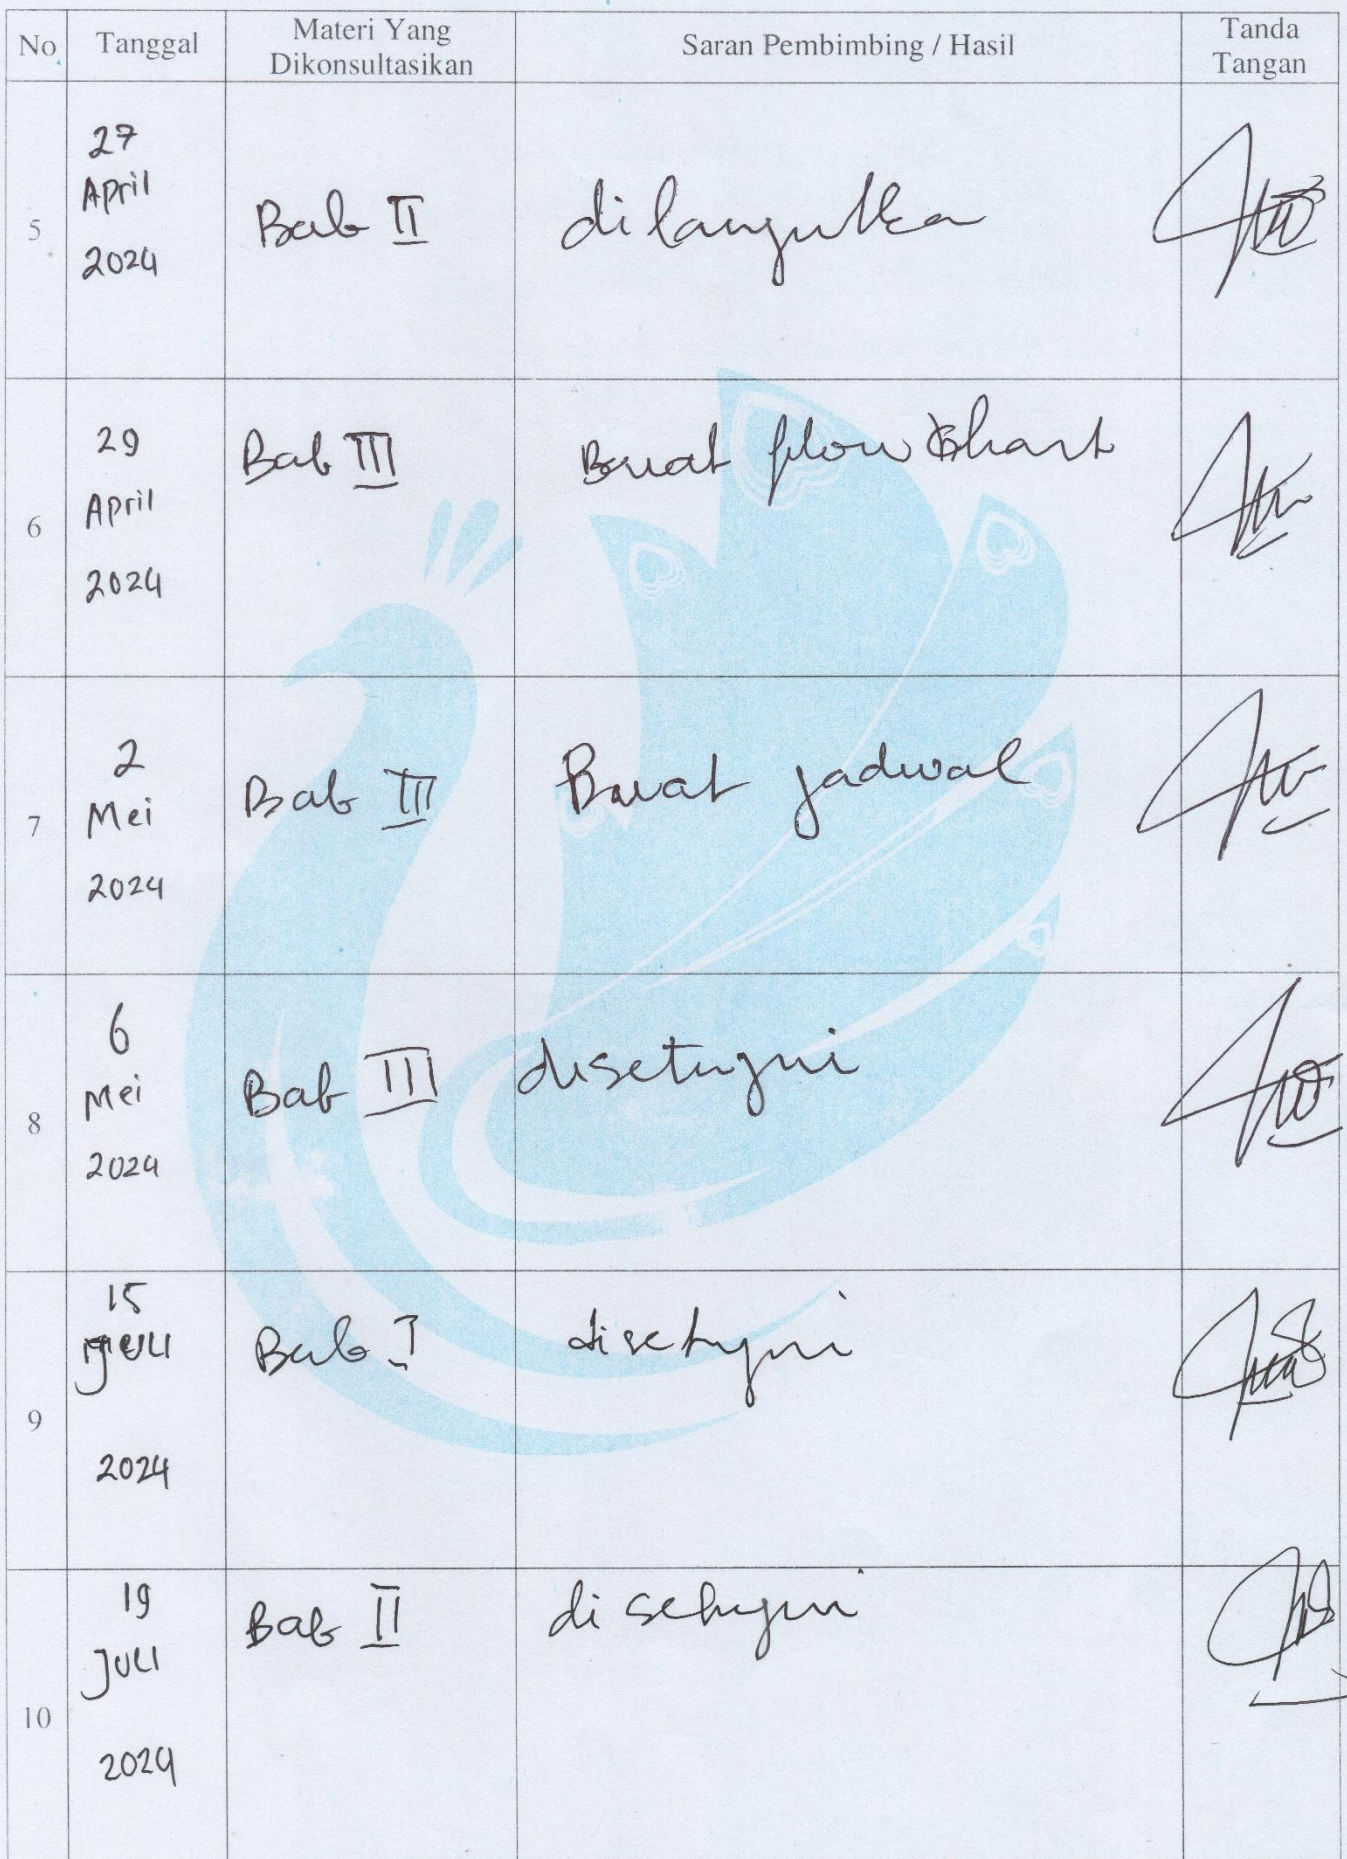 No Tanggal Materi Yang Dikonsultasikan Saran Pembimbing / Hasil Tanda Tangan
5 27 April 2024 Bab II dilanjutka
6 29 April 2024 Bab III Buat flowchart
7 2 Mei 2024 Bab III Buat jadwal
8 6 Mei 2024 Bab III disetujui
9 15 Juli 2024 Bab I disetujui
10 19 Juli 2024 Bab II disetujui